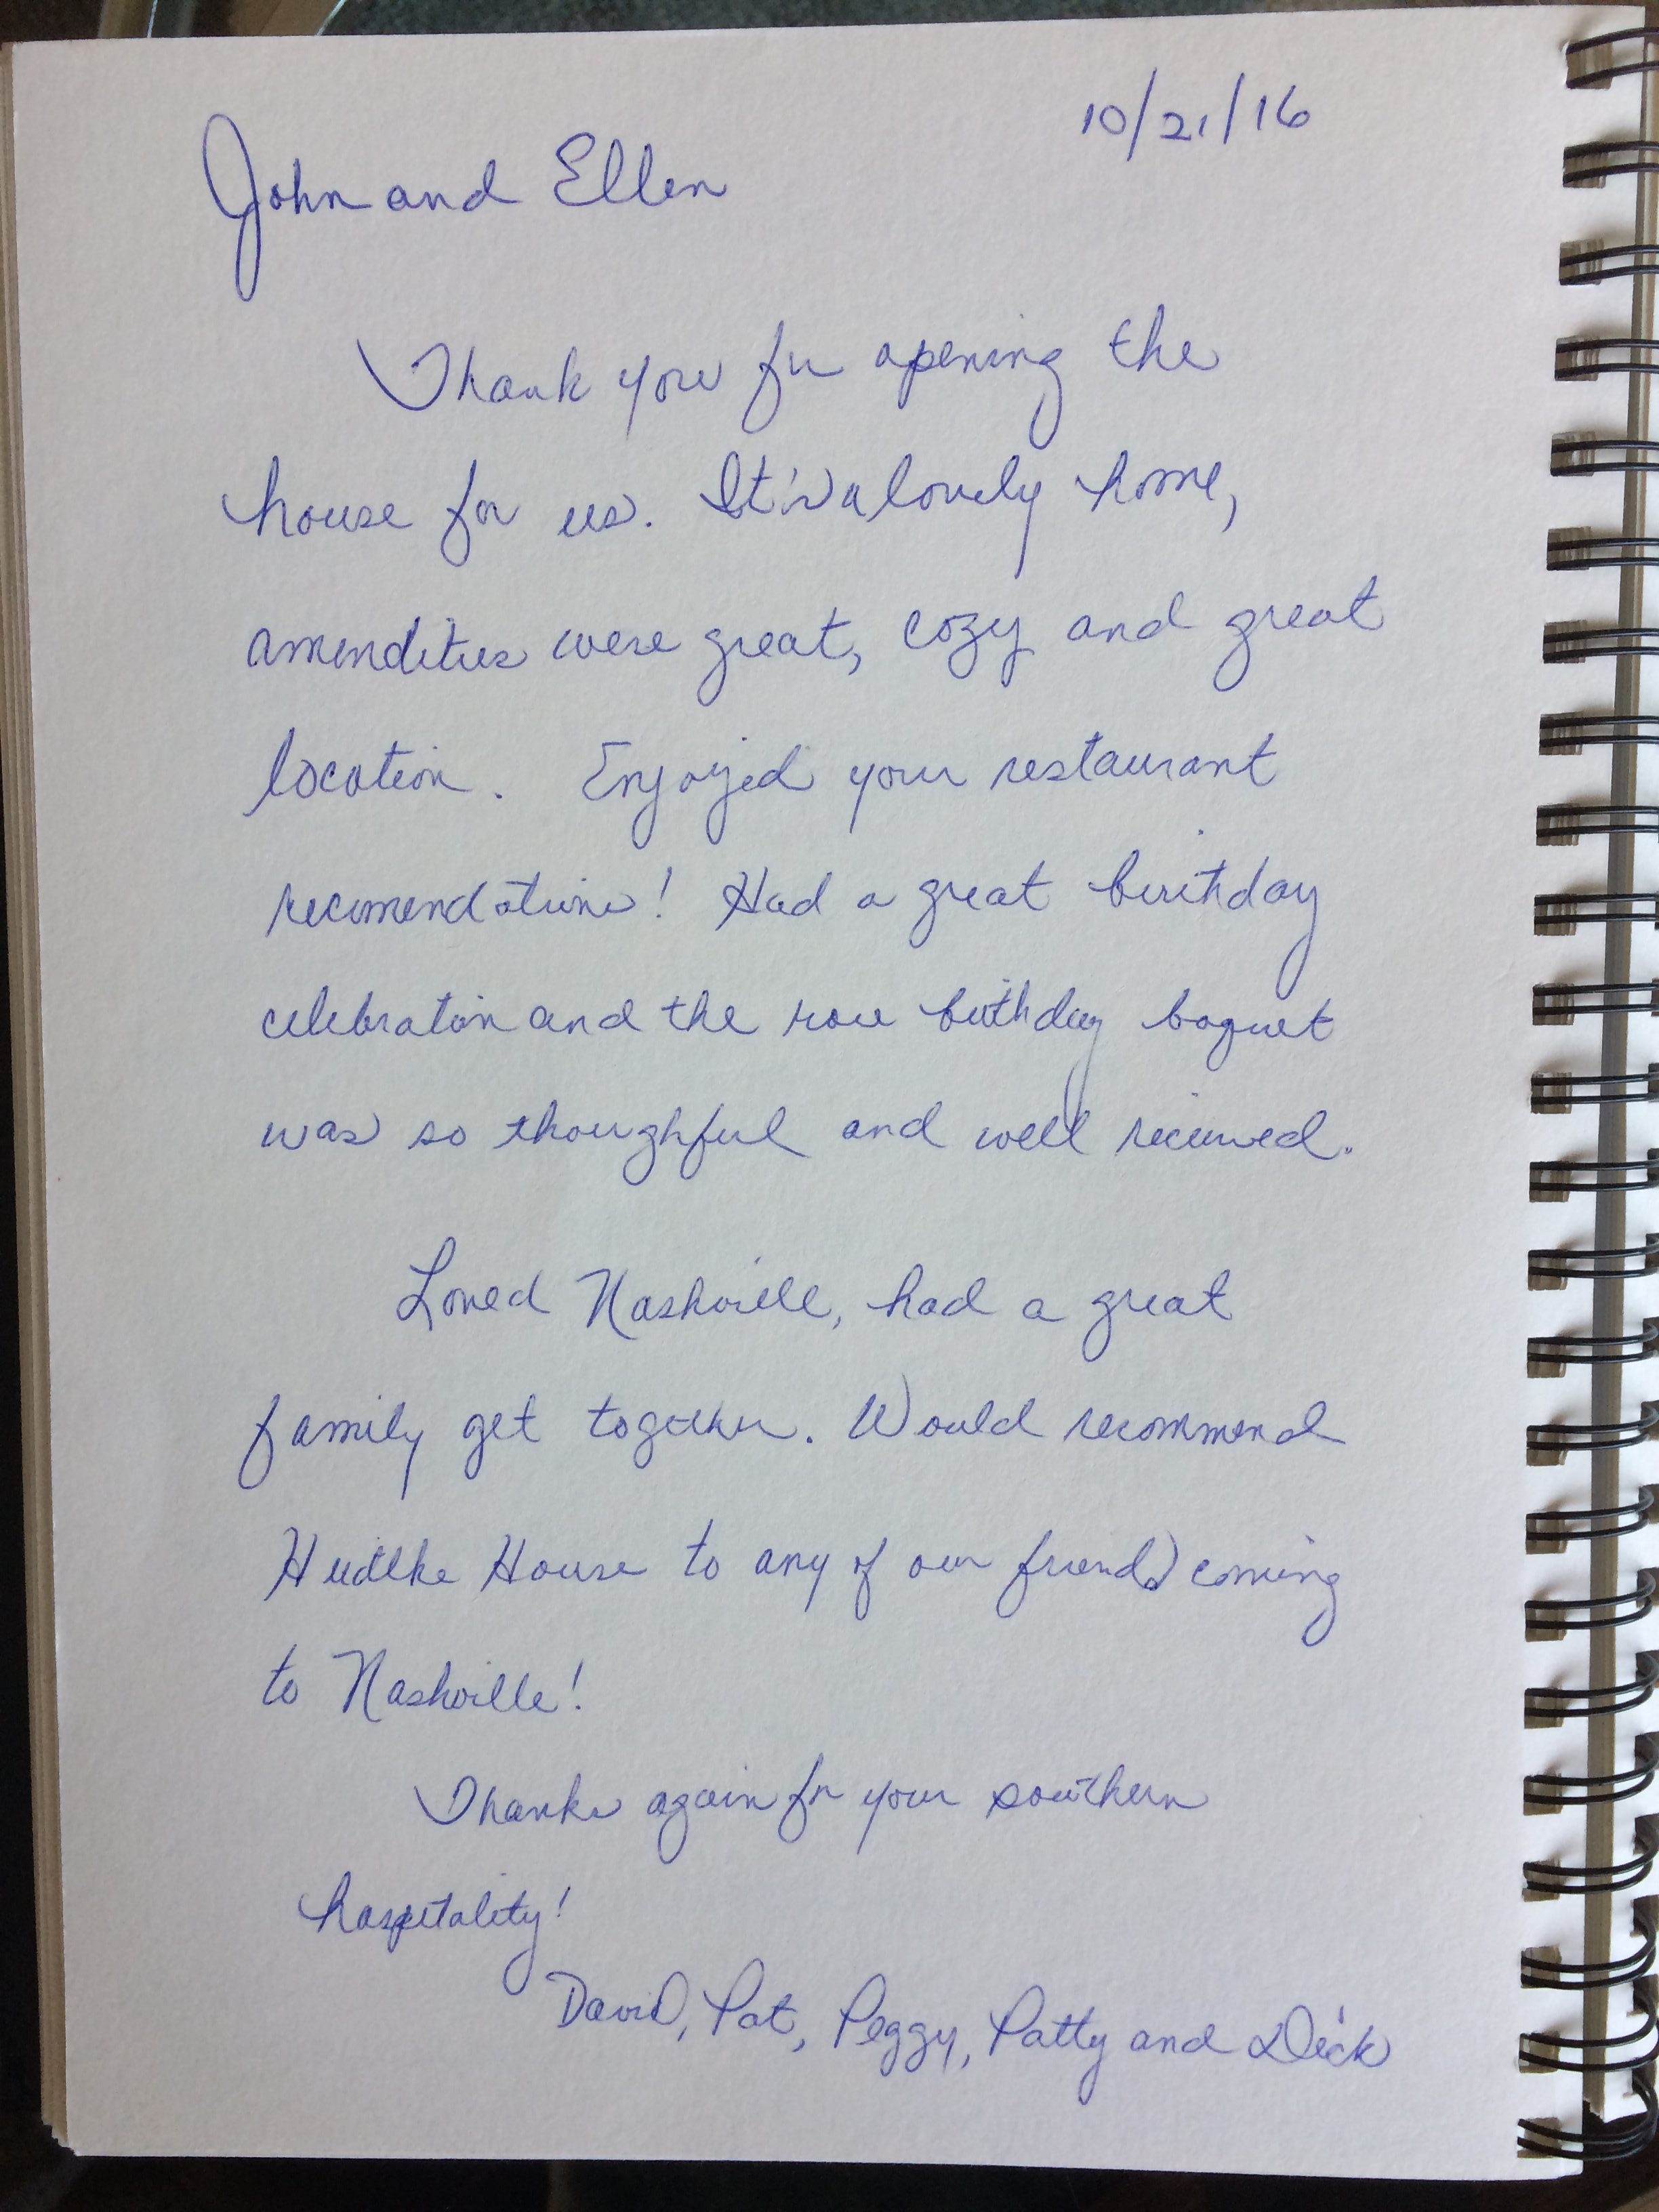 10/21/16
John and Ellen
Thank you for opening the
house for us. It's a lovely home,
amendities were great, cozy and great
location. Enjoyed your restaurant
recomendations! Had a great birthday
celebration and the rose birthday boquet
was so thoughful and well received.
Loved Nashville, had a great
family get together. Would recommend
House to any of our friends coming
to Nashville!
Thanks again for your southern
hospitality!
David, Pat, Peggy, Patty and Dick